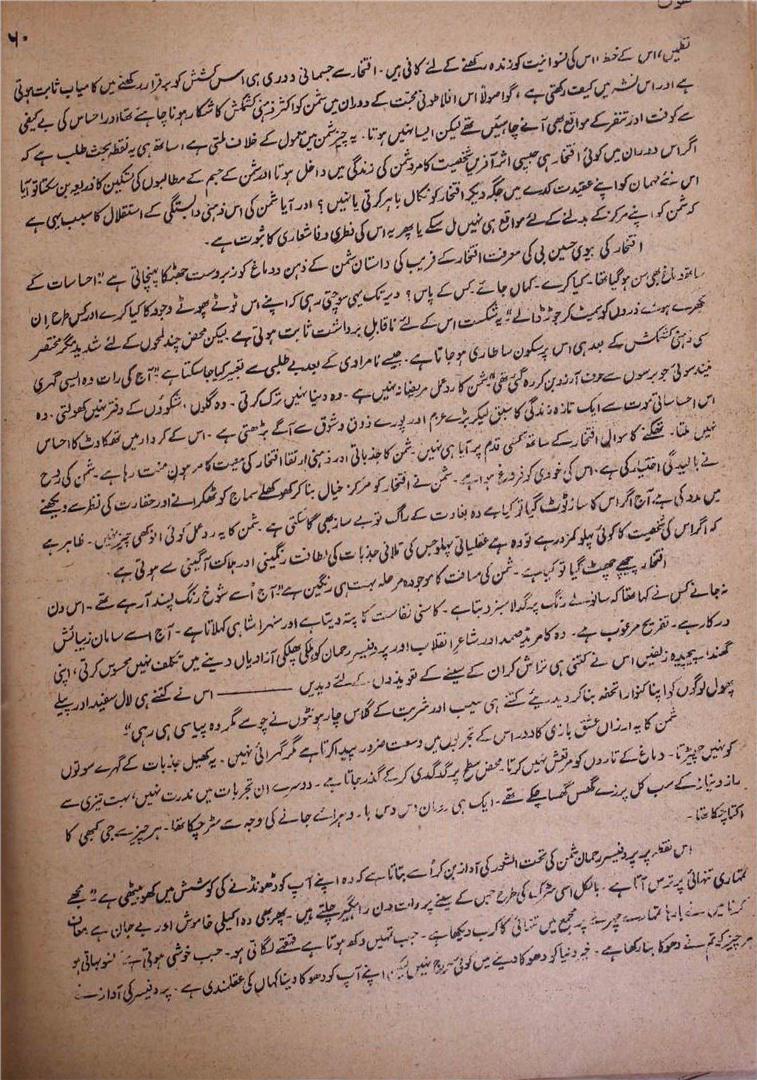 نقوش
۶۰
نظمیں، اس کے خط، اس کی نسوانیت کو زندہ رکھنے کے لئے کافی ہیں۔ افتخار سے جسمانی دوری ہی اس کشش کو برقرار رکھنے میں کامیاب ثابت ہوتی
ہے اور اس نشہ میں کیف رکھتی ہے، گو اصولاً اس افلاطونی محبت کے دوران میں شمن کو اکثر ذہنی کشمکش کا شکار ہونا چاہئے تھا اور احساس کی بے کیفی
سے کوفت اور تنفر کے مواقع بھی آنے چاہئیں تھے لیکن ایسا نہیں ہوتا۔ یہ چیز شمن میں معمول کے خلاف ملتی ہے، ساتھ ہی یہ نقطہ بحث طلب ہے کہ
اگر اس دوران میں کوئی افتخار ہی جیسی اثر آفریں شخصیت کا مرد شمن کی زندگی میں داخل ہوتا اور شمن کے جسم کے مطالبوں کی تسکین کا ذریعہ بن سکتا تو آیا
اس نئے مہمان کو اپنے عقیدت کدے میں جگہ دیکر افتخار کو نکال باہر کرتی یا نہیں؟ اور آیا شمن کی اس ذہنی وابستگی کے استقلال کا سبب یہی ہے
کہ شمن کو اپنے مرکز کے بدلنے کے لئے مواقع ہی نہیں مل سکے یا پھر یہ اس کی فطری وفا شعاری کا ثبوت ہے۔
افتخار کی بیوی حسین بی کی معرفت افتخار کے فریب کی داستان شمن کے ذہن و دماغ کو زبردست جھٹکا پہنچاتی ہے "احساسات کے
ساتھ دماغ بھی سن ہو گیا تھا۔ کیا کرے۔ کہاں جائے۔ کس کے پاس؟ دیر تک یہی سوچتی رہی کہ اپنے اس ٹوٹے پھوٹے وجود کا کیا کرے اور کس طرح ان
بکھرے ہوئے ذروں کو سمیٹ کر جوڑ ڈالے" یہ شکست اس کے لئے ناقابل برداشت ثابت ہوتی ہے لیکن محض چند لمحوں کے لئے شدید مگر مختصر
سی ذہنی کشمکش کے بعد ہی اس پر سکون سا طاری ہو جاتا ہے۔ جیسے نامرادی کے بعد بے طلبی سے تعبیر کیا جا سکتا ہے "آج کی رات وہ ایسی گہری
نیند سوئی جو برسوں سے صرف آرزو بن کر رہ گئی تھی" شمن کا رد عمل مریضانہ نہیں ہے۔ وہ دنیا نہیں ترک کرتی۔ وہ گلوں، شکووں کے دفتر نہیں کھولتی، وہ
اس احساساتی موت سے ایک تازہ زندگی کا سبق لیکر بڑے عزم اور پورے ذوق و شوق سے آگے بڑھتی ہے۔ اس کے کردار میں تھکاوٹ کا احساس
نہیں ملتا۔ تھکنے کا سوال افتخار کے ساتھ کسی قدم پر آیا ہی نہیں۔ شمن کا جذباتی اور ذہنی ارتقا افتخار کی محبت کا مرہون منت رہا ہے۔ شمن کی روح
نے بالیدگی اختیار کی ہے، اس کی خودی کو فروغ ہوا ہے۔ شمن نے افتخار کو مرکز خیال بنا کر کھوکھلے سماج کو ٹھکرانے اور حقارت کی نظر سے دیکھنے
میں مدد کی ہے، آج اگر اس کا ساز ٹوٹ گیا تو کیا ہے وہ بغاوت کے راگ تو بے ساز بھی گا سکتی ہے۔ شمن کا یہ رد عمل کوئی انوکھی چیز نہیں۔ ظاہر ہے
کہ اگر اس کی شخصیت کا کوئی پہلو کمزور ہے تو وہ ہے عقلیاتی پہلو جس کی تلافی جذبات کی لطافت رنگینی اور ہلاکت آگینی سے ہوتی ہے۔
افتخار پیچھے چھٹ گیا تو کیا ہے۔ شمن کی مسافت کا موجودہ مرحلہ بہت ہی رنگین ہے "آج اُسے شوخ رنگ پسند آ رہے تھے۔ اس دن
نہ جانے کس نے کہا تھا کہ سانولے رنگ پر گدلا سبز دیتا ہے۔ کاسنی نفاست کا پتہ دیتا ہے اور سنہرا شاہی کہلاتا ہے۔ آج اسے سامان زیبائش
درکار ہے۔ تفریح مرغوب ہے۔ وہ کامریڈ صمد اور شاعر انقلاب اور پروفیسر رحمان کو ہلکی پھلکی آزادیاں دینے میں تکلف نہیں محسوس کرتی، اپنی
گھنی پیچیدہ زلفیں اس نے کتنی ہی تراش کر ان کے سینے کے تعویذوں کے لئے دیدیں ——— اس نے کتنے ہی لال سفید اور پیلے
پھول لوگوں کو اپنا کنوارا تحفہ بنا کر دیدیئے کتنے ہی سیب اور شربت کے گلاس چار ہونٹوں نے چوسے مگر وہ پیاسی ہی رہی"
شمن کا یہ ارزاں عشق بازی کا دور اس کے تجربوں میں وسعت ضرور پیدا کرتا ہے مگر گہرائی نہیں۔ یہ کھیل جذبات کے گہرے سوتوں
کو نہیں چھیڑتا۔ دماغ کے تاروں کو مرتعش نہیں کرتا۔ محض سطح پر گدگدی کر کے گذر جاتا ہے۔ دوسرے ان تجربات میں ندرت نہیں، بہت تیزی سے
راز و نیاز کے سب کل پرزے گھس گھسا چکے تھے۔ ایک ہی رومان دس دس بار دہرائے جانے کی وجہ سے سڑ چکا تھا۔ ہر چیز سے جی کبھی کا
اکتا چکا تھا۔
اس نقطہ پر پروفیسر رحمان شمن کی تحت الشعور کی آواز بن کر اُسے بتاتا ہے کہ وہ اپنے آپ کو ڈھونڈنے کی کوشش میں کھو بیٹھی ہے "مجھے
تمہاری تنہائی پر ترس آتا ہے۔ بالکل اسی سڑک کی طرح جس کے سینے پر رات دن راہگیر چلتے ہیں۔ پھر بھی وہ اکیلی خاموش اور بے جان ہے معاف
کرنا میں نے بارہا تمہارے چہرے پر مجمع میں تنہائی کا کرب دیکھا ہے۔ جب تمہیں دکھ ہوتا ہے قہقہے لگاتی ہو۔ جب خوشی ہوتی ہے آنسو بہاتی ہو
ہر چیز کو تم نے دھوکا بنا رکھا ہے۔ خیر دنیا کو دھوکا دینے میں کوئی حرج نہیں لیکن اپنے آپ کو دھوکا دینا کہاں کی عقلمندی ہے۔ پروفیسر کی آواز نے